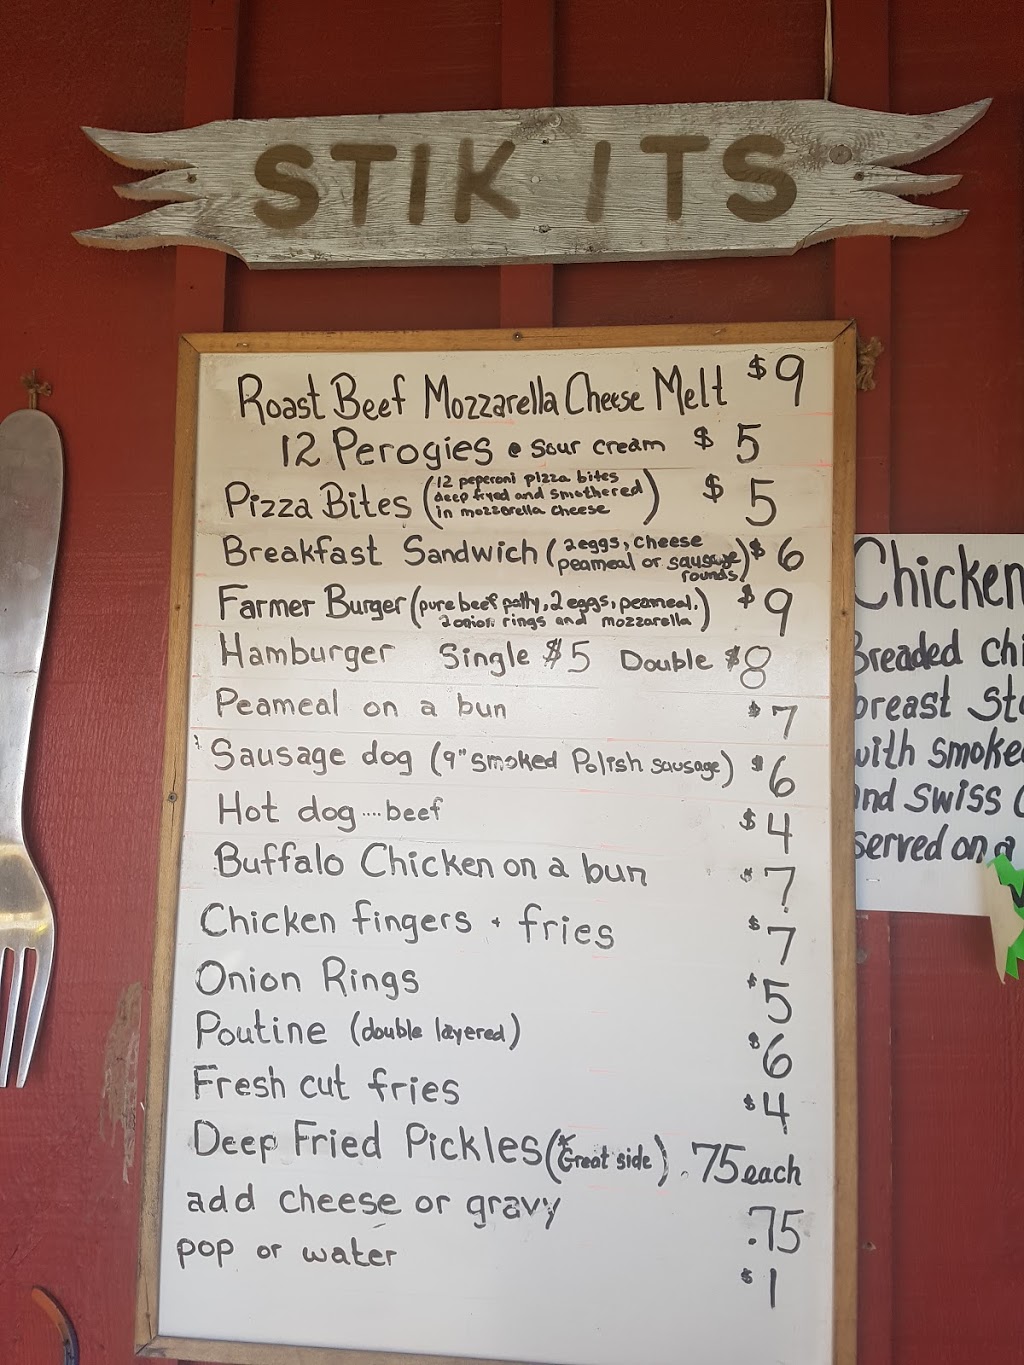 STIK ITS
Roast Beef Mozzarella Cheese Melt $9
12 Perogies @ sour cream $5
Pizza Bites (12 peperoni pizza bites
deep fryed and smothered
in mozzorella cheese) $5
Breakfast Sandwich (2eggs, cheese
peameal or sausage
rounds) $6
Farmer Burger (pure beef patty, 2 eggs, peameal,
2 onion rings and mozzarella) $9
Hamburger Single $5 Double $8
Peameal on a bun $7
Sausage dog (9" smoked Polish sausage) $6
Hot dog....beef $4
Buffalo Chicken on a bun $7
Chicken fingers + fries $7
Onion Rings $5
Poutine (double layered) $6
Fresh cut fries $4
Deep Fried Pickles (*Great side) .75 each
add cheese or gravy .75
pop or water $1
Chicken
Breaded chi
breast st
with smoke
and swiss
served on a